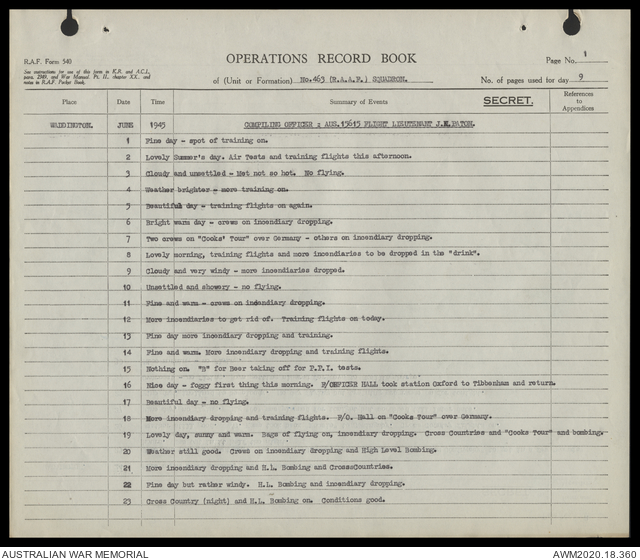 R.A.F. Form 540
See instructions for use of this form in K.R. and A.C.I.,
para. 2349, and War Manual, Pt. II., chapter XX., and
notes in R.A.F. Pocket Book.
OPERATIONS RECORD BOOK
of (Unit or Formation) No.463 (R.A.A.F.) SQUADRON.
Page No. 1
No. of pages used for day 9
Place Date Time Summary of Events SECRET. References to Appendices
WADDINGTON. JUNE 1945 COMPILING OFFICER : AUS.15615 FLIGHT LIEUTENANT J.M.PATON.
1 Fine day - spot of training on.
2 Lovely Summer's day. Air Tests and training flights this afternoon.
3 Cloudy and unsettled - Met not so hot. No flying.
4 Weather brighter - more training on.
5 Beautiful day - training flights on again.
6 Bright warm day - crews on incendiary dropping.
7 Two crews on "Cooks' Tour" over Germany - others on incendiary dropping.
8 Lovely morning, training flights and more incendiaries to be dropped in the "drink".
9 Cloudy and very windy - more incendiaries dropped.
10 Unsettled and showery - no flying.
11 Fine and warm - crews on incendiary dropping.
12 More incendiaries to get rid of. Training flights on today.
13 Fine day more incendiary dropping and training.
14 Fine and warm. More incendiary dropping and training flights.
15 Nothing on. "B" for Beer taking off for P.P.I. tests.
16 Nice day - foggy first thing this morning. F/OFFICER HALL took station Oxford to Tibbenham and return.
17 Beautiful day - no flying.
18 More incendiary dropping and training flights. F/O. Hall on "Cooks Tour" over Germany.
19 Lovely day, sunny and warm. Bags of flying on, incendiary dropping. Cross Countries and "Cooks Tour" and bombing.
20 Weather still good. Crews on incendiary dropping and High Level Bombing.
21 More incendiary dropping and H.L. Bombing and CrossCountries.
22 Fine day but rather windy. H.L. Bombing and incendiary dropping.
23 Cross Country (night) and H.L. Bombing on. Conditions good.
AUSTRALIAN WAR MEMORIAL
AWM2020.18.360